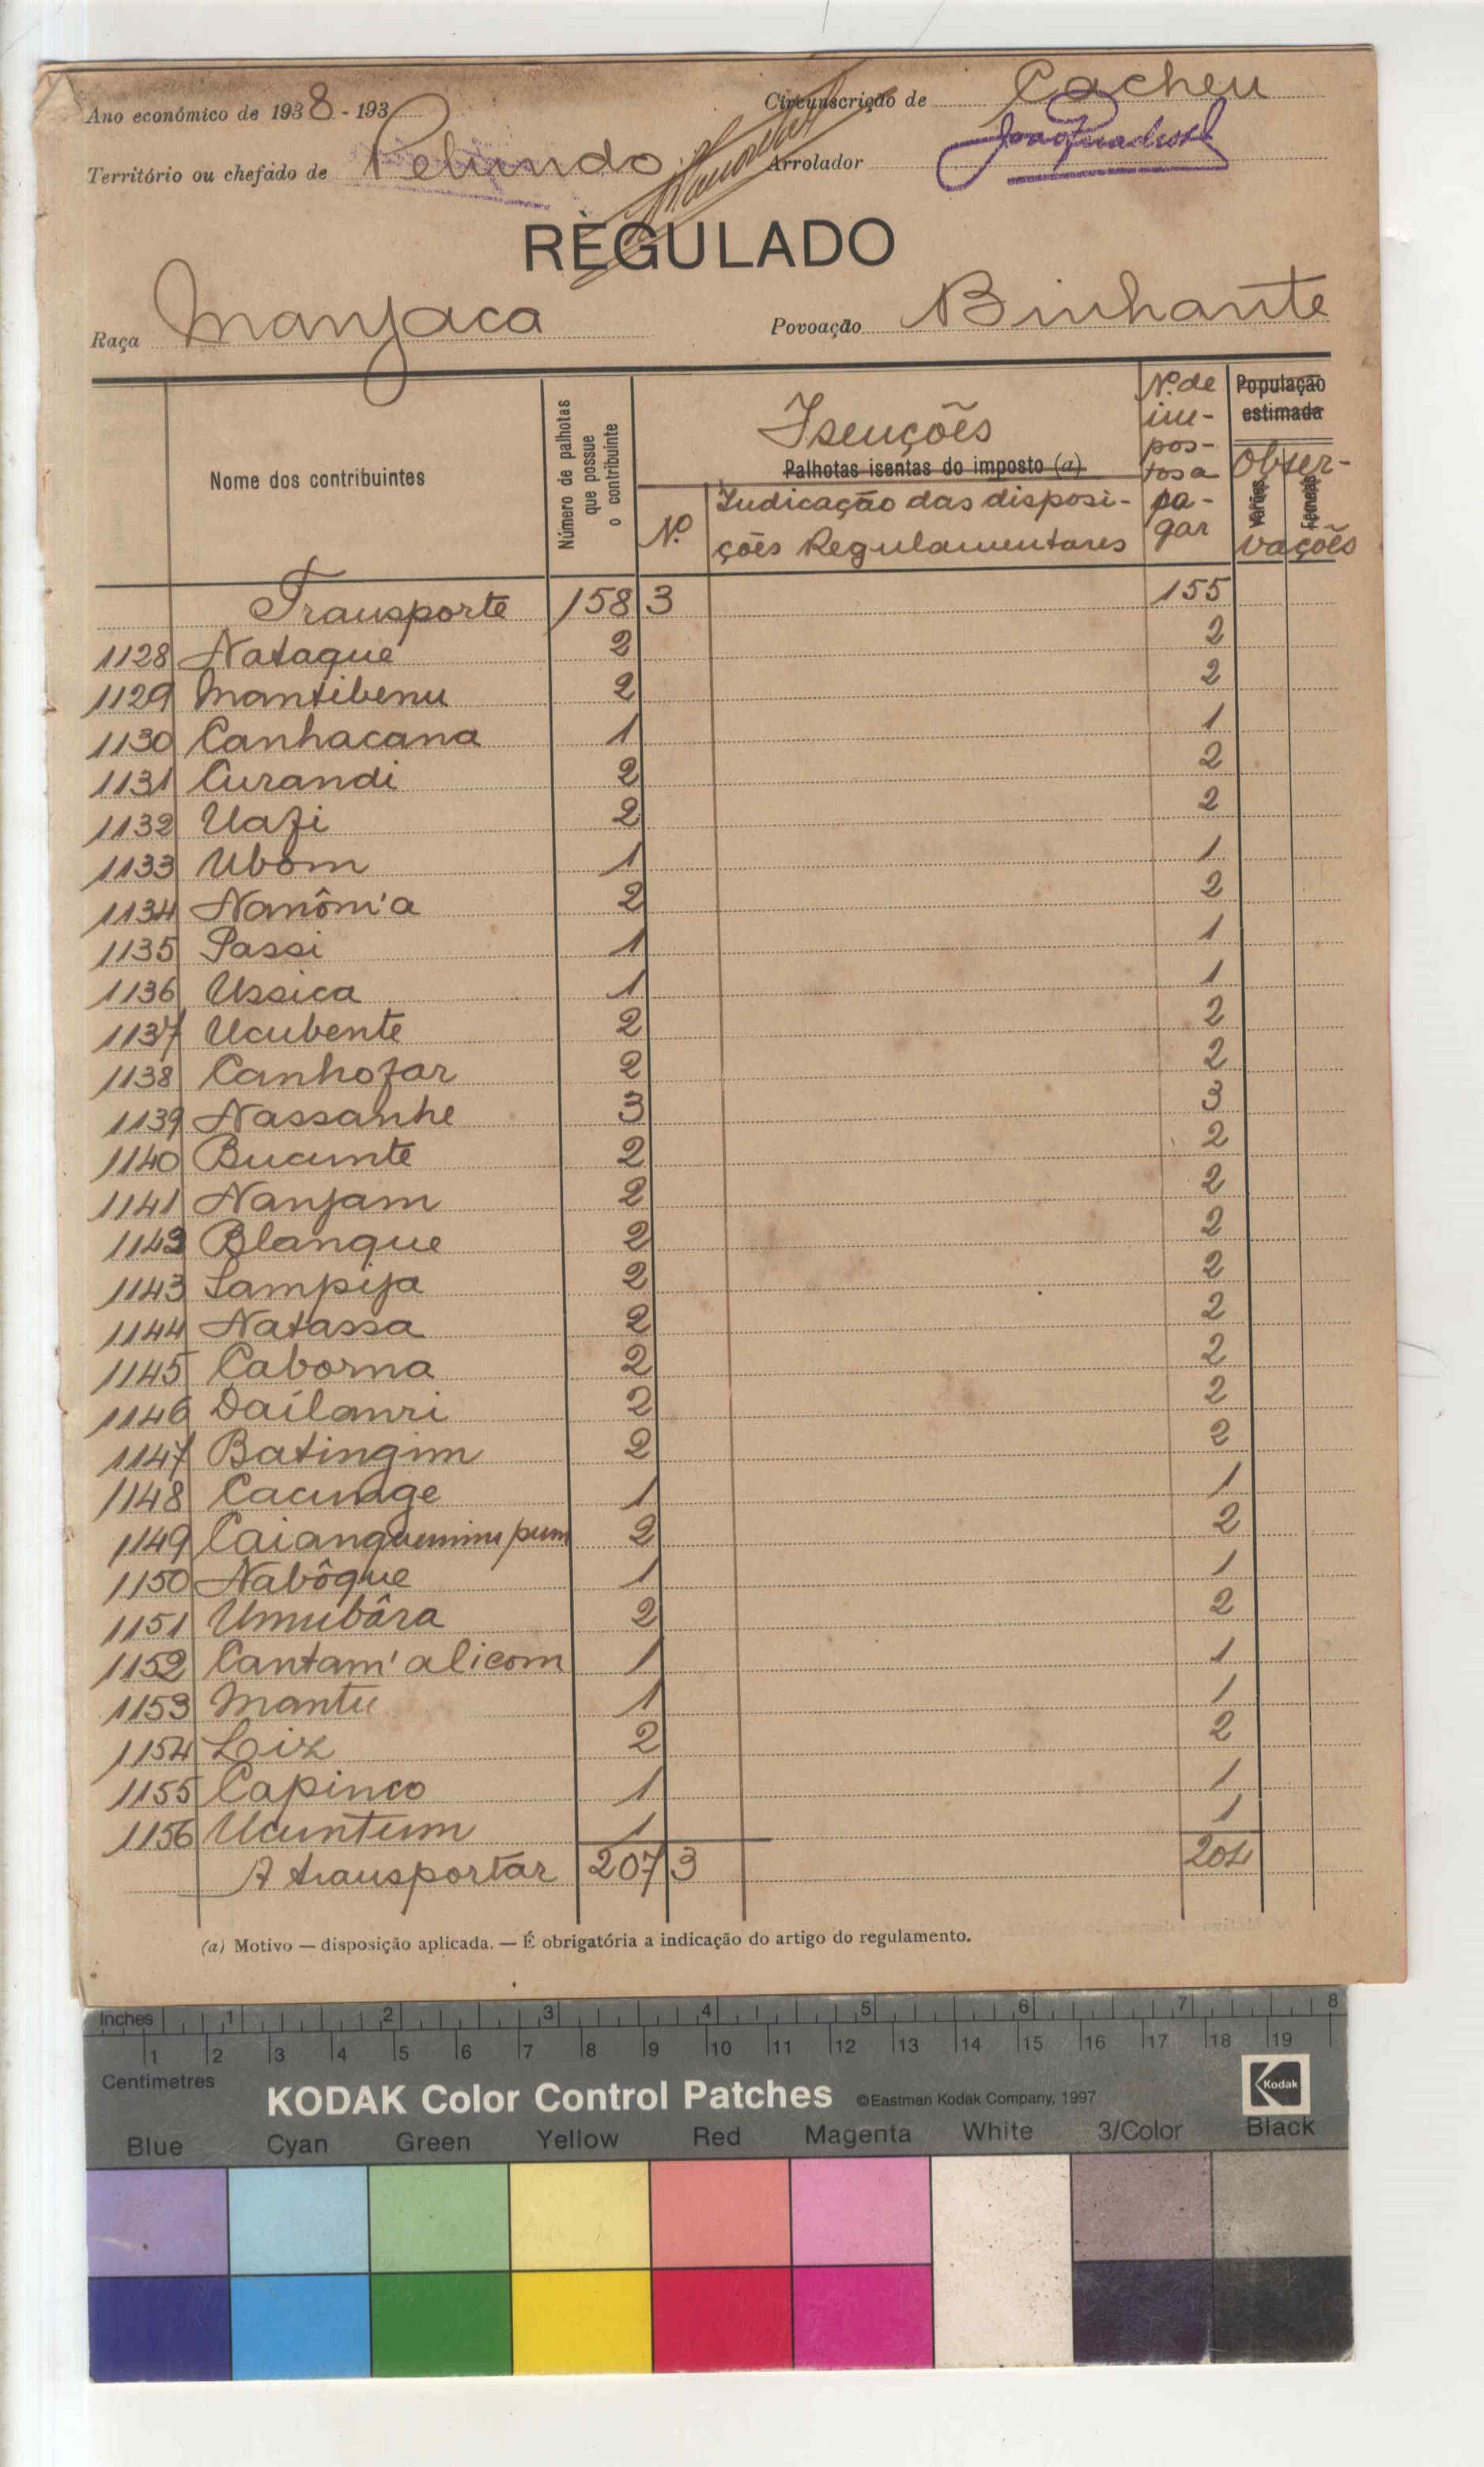 Ano económico de 1938 - 193
Circunscrição de Cacheu
Território ou chefado de Pelundo
Arrolador
REGULADO
Raça Manjaca
Povoação Binhante
Nome dos contribuintes
Número de palhotas que possue o contribuinte
Isenções
Palhotas isentas do imposto (a)
Nº
Indicação das disposi-
ções Regulamentares
Nº. de
im-
pos-
tos a
pa-
gar
População
estimada
Obser-
vações
Varões
Femeas
Transporte 158 3 155
1128 Nataque 2 2
1129 Mantibenu 2 2
1130 Canhacana 1 1
1131 Curandi 2 2
1132 Uafi 2 2
1133 Ubom 1 1
1134 Nanôm'a 2 2
1135 Passi 1 1
1136 Ussica 1 1
1137 Ucubente 2 2
1138 Canhofar 2 2
1139 Nassanhe 3 3
1140 Bucunte 2 2
1141 Nanjam 2 2
1142 Blanque 2 2
1143 Sampija 2 2
1144 Natassa 2 2
1145 Caborna 2 2
1146 Dailanri 2 2
1147 Batingim 2 2
1148 Cacunage 1 1
1149 2 2
1150 Nabôque 1 1
1151 Umubâra 2 2
1152 Cantam'alicom 1 1
1153 Mantu 1 1
1154 Loiz 2 2
1155 Capinco 1 1
1156 Ucuntum 1 1
A transportar 207 3 204
(a) Motivo — disposição aplicada. — É obrigatória a indicação do artigo do regulamento.
Inches 1 2 3 4 5 6 7 8
1 2 3 4 5 6 7 8 9 10 11 12 13 14 15 16 17 18 19
Centimetres
KODAK Color Control Patches ©Eastman Kodak Company, 1997 Kodak
Blue Cyan Green Yellow Red Magenta White 3/Color Black